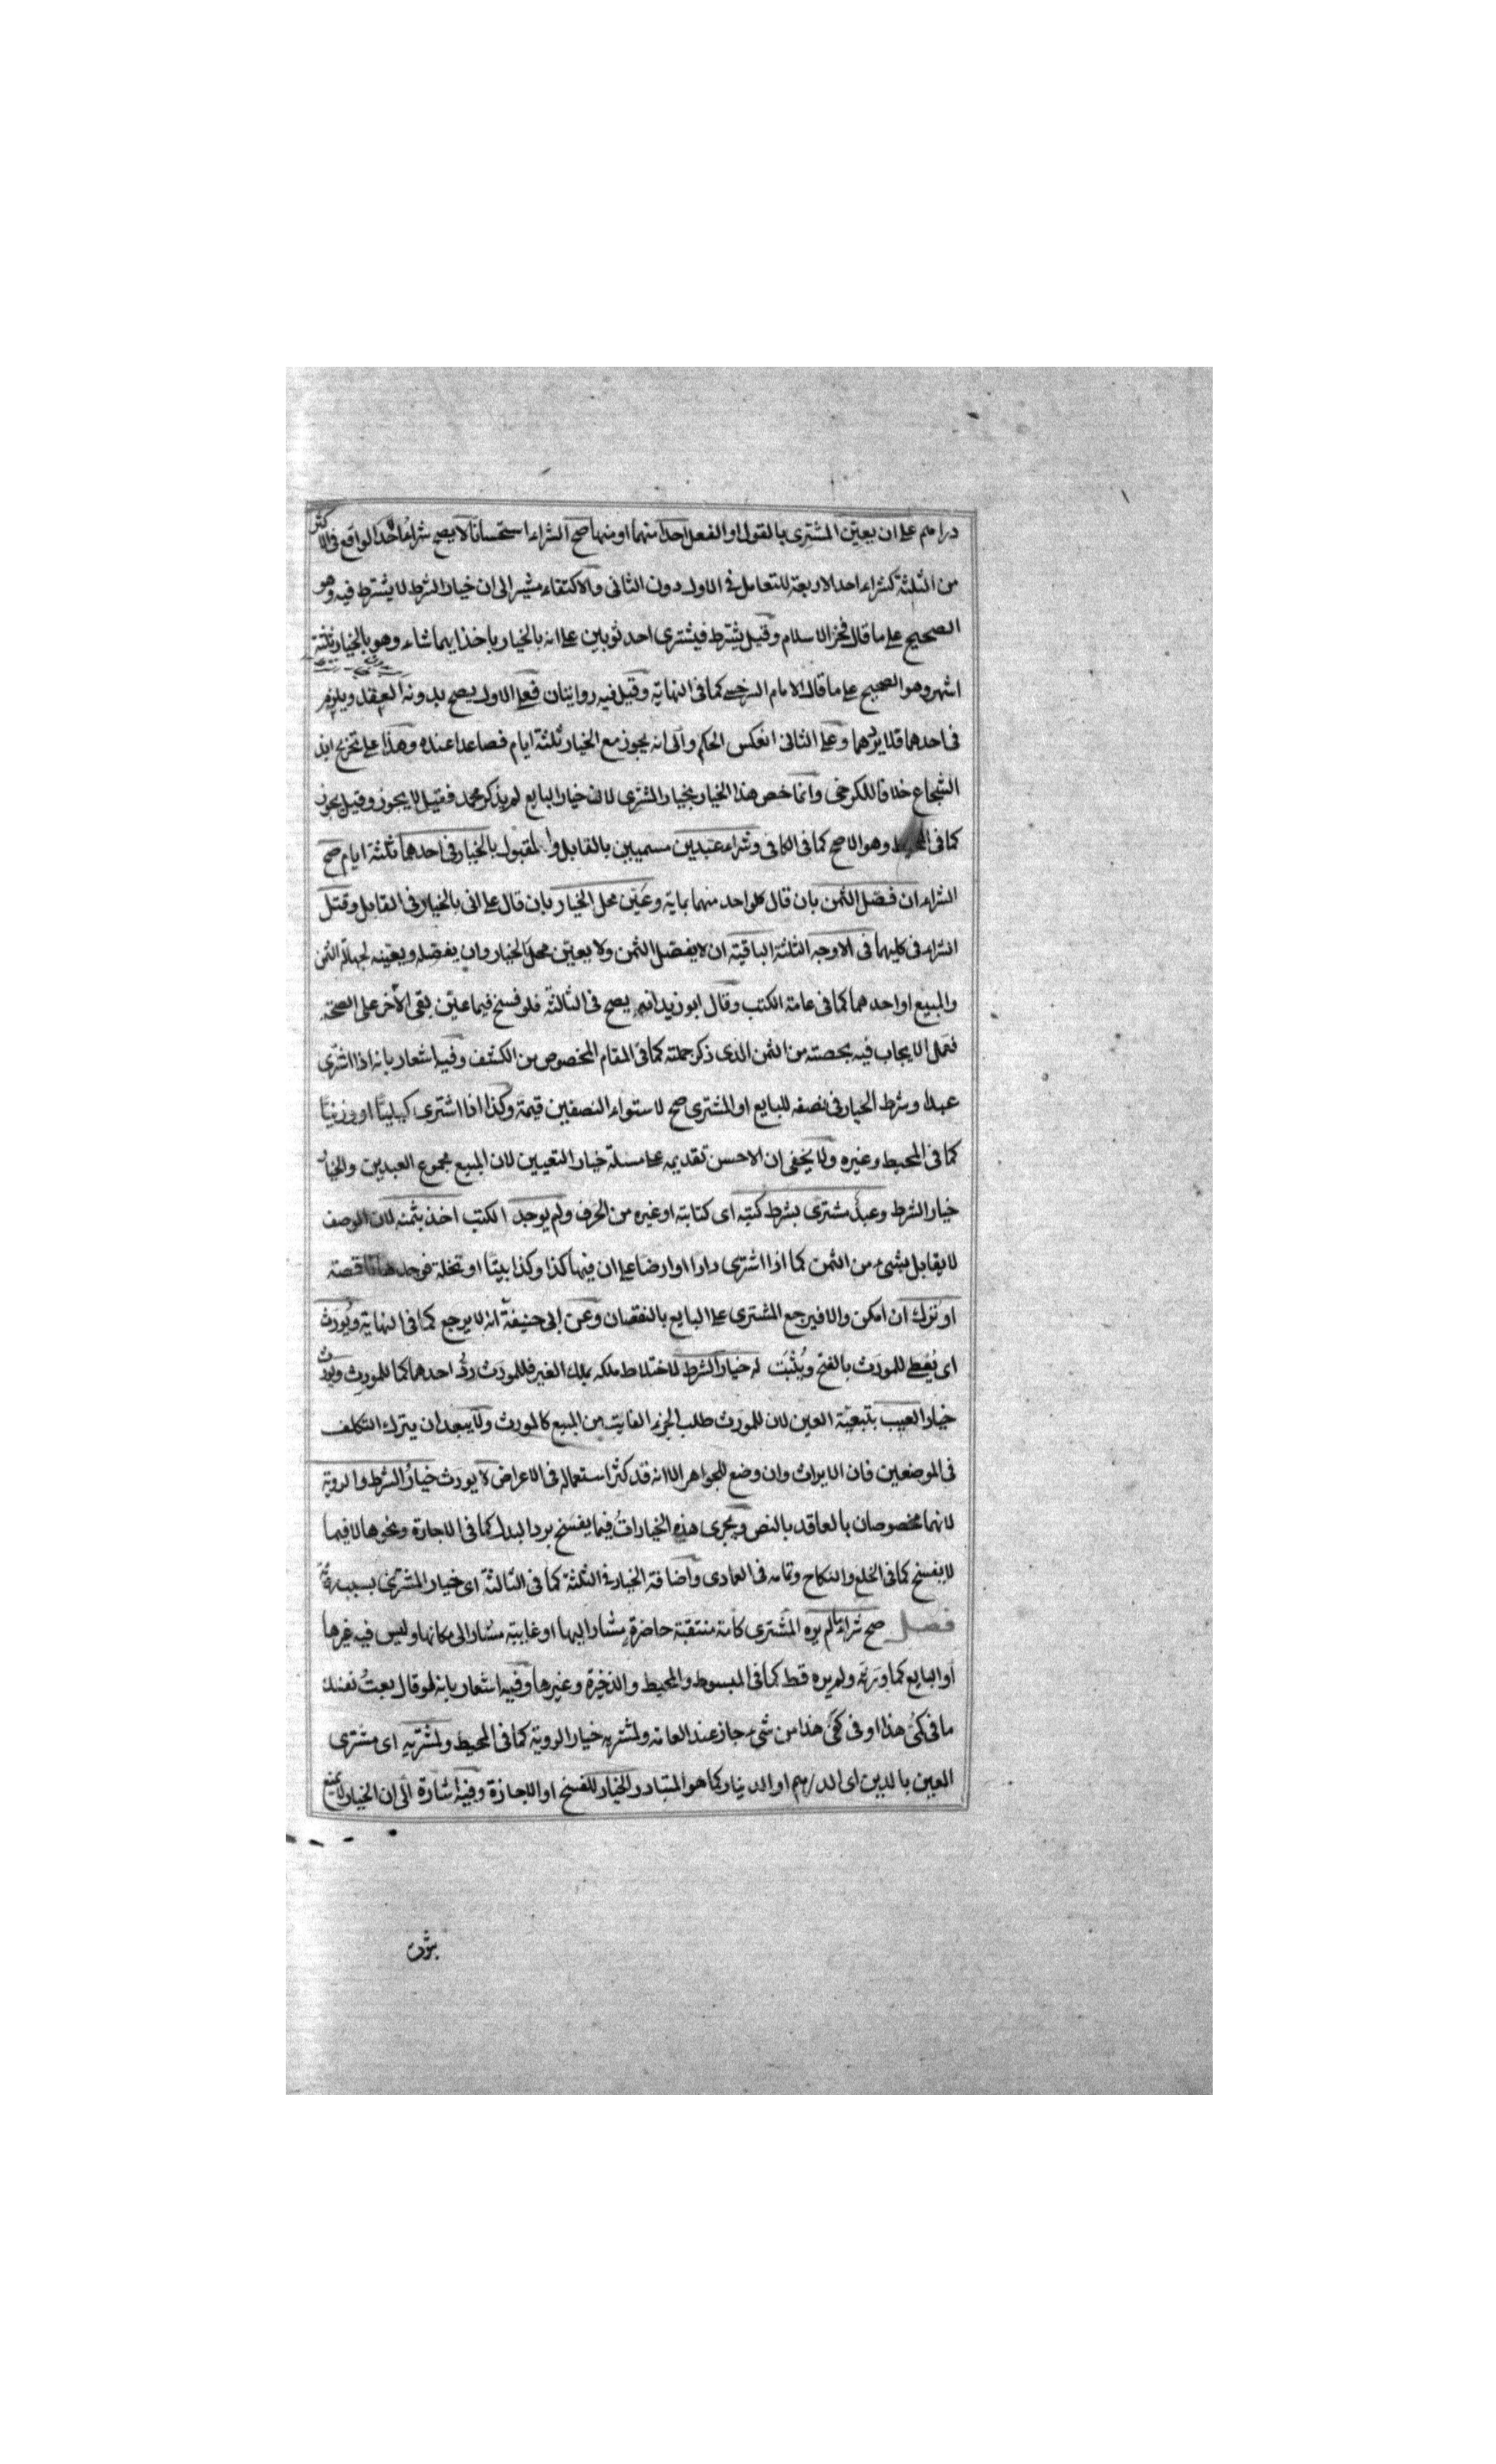 دراهم على ان يعين المشترى بالقول او الفعل احدا منهما او منها صح الشراء استحسانا لا يصح شراء احد الواقع فى الاكثر
من الثلثة كشراء احد الاربعة للتعامل فى الاول دون الثانى والاكتفاء مشير الى ان خيار الشرط لا يشترط فيه وهو
الصحيح على ما قال فخر الاسلام وقيل يشترط فيشترى احد ثوبين على انه بالخيار ياخذ ايهما شاء وهو بالخيار ثلثة
اشهر وهو الصحيح على ما قال الامام السرخسى كما فى النهاية وقيل فيه روايتان فعلى الاول يصح بدونه العقد ويلزم
فى احدهما فلا يردهما وعلى الثانى انعكس الحكم والى انه يجوز مع الخيار ثلثة ايام فصاعدا عنده وهذا على تخريج ابن
الشجاع خلافا للكرخى وانما خص هذا الخيار بخيار المشترى لان خيار البايع لم يذكر محمد فقيل لا يجوز وقيل يجوز
كما فى المحيط وهو الاصح كما فى الكافى وشراء عبدين مسميين بالقابل والمقبول بالخيار فى احدهما ثلثة ايام صح
الشراء ان فصل الثمن بان قال كل واحد منهما بماية وعين محل الخيار بان قال على انى بالخيار فى القابل وقتل
الشراء فى كليهما فى الاوجه الثلثة الباقية ان لا يفصل الثمن ولا يعين محل الخيار وان يفصله ويعينه لجهالة الثمن
والمبيع او احدهما كما فى عامة الكتب وقال ابو زيد انه يصح فى الثالثة فلو فسخ فيما عين بقى الآخر على الصحة
فتمل الايجاب فيه بحصته من الثمن الذى ذكر جملته كما فى المقام المخصوص من الكشف وفيه اشعار بانه اذا اشترى
عبدا وشرط الخيار فى نصفه للبايع او المشترى صح لاستواء النصفين قيمة وكذا اذا اشترى كيليا او وزنيا
كما فى المحيط وغيره ولا يخفى ان الاحسن تقديمه على مسئلة خيار التعيين لان المبيع مجموع العبدين والخيار
خيار الشرط وعبد مشترى بشرط كتبه اى كتابته او غيره من الحرف ولم يوجد الكتب اخذ بثمنه لان الوصف
لا يقابل بشىء من الثمن كما اذا اشترى دارا او ارضا على ان فيها كذا وكذا بيتا او نخلة فوجدها ناقصة
او ترك ان امكن والا فيرجع المشترى على البايع بالنقصان وعن ابى حنيفة انه لا يرجع كما فى النهاية ويورث
اى يعطى للمورث بالفتح ويثبت له خيار الشرط لاختلاط ملكه بملك الغير فللمورث رد احدهما كما للمورث ويورث
خيار العيب بتبعية العين لان للمورث طلب الجزء الفايت من المبيع كالمورث ولا يبعد ان يترك التكلف
فى الموضعين فان الايراث وان وضع للجواهر الا انه قد كثر استعماله فى الاعراض لا يورث خيار الشرط والروية
لانهما مخصوصان بالعاقد بالنص ويجرى هذه الخيارات فيما يفسخ برد البدل كما فى الاجارة ونحوها لا فيما
لا يفسخ كما فى الخلع والنكاح وتمامه فى العمادى واضافة الخيار فى الثلثة كما فى الثالثة اى خيار المشترى بسبب رؤية
فصل صح شراء ما لم يره المشترى كامة منتقبة حاضرة مشار اليها او غايبة مشار الى مكانها وليس فيه غيرها
او البايع كما ورثه ولم يره قط كما فى المبسوط والمحيط والذخيرة وغيرها وفيه اشعار بانه لو قال بعت نفسك
ما فى كمى هذا او فى كفى هذا من شىء جاز عند العامة ولمشتريه خيار الروية كما فى المحيط ولمشتريه اى مشترى
العين بالدين اى الدراهم او الدنانير كما هو المتبادر الخيار للفسخ او الاجازة وفيه اشارة الى ان الخيار لا يمنع